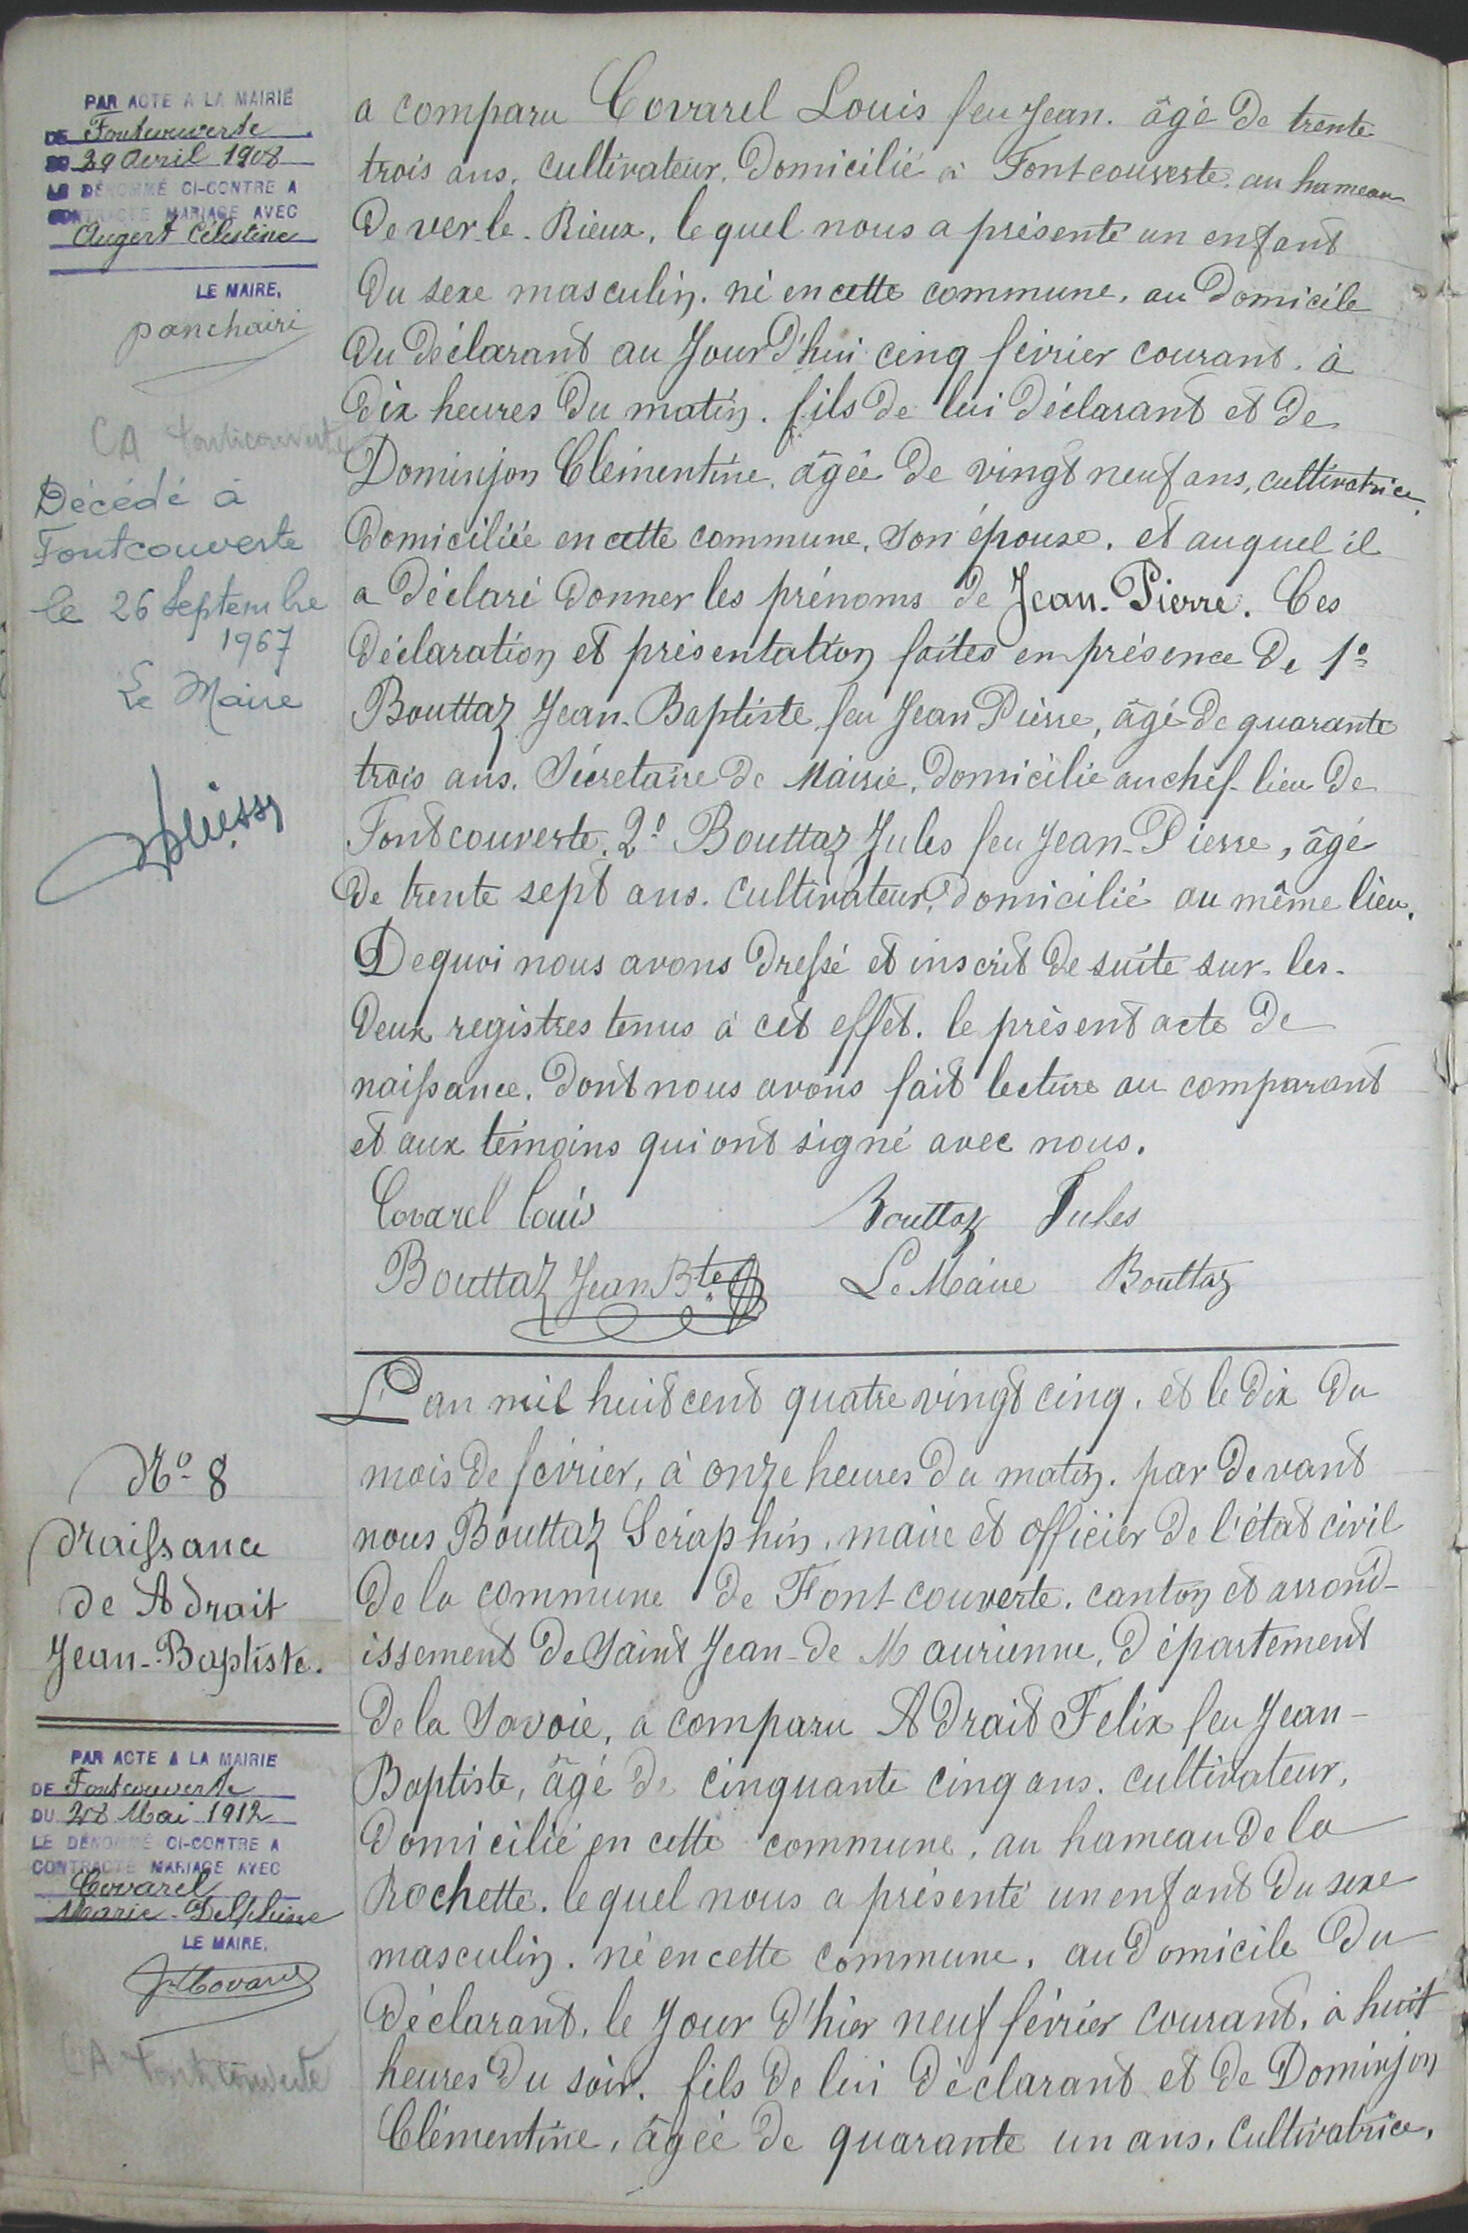 PAR ACTE A LA MAIRIE
DE Fontcouverte
DU 29 Avril 1908
LE DÉNOMMÉ CI-CONTRE A
CONTRACTÉ MARIAGE AVEC
Augert Célestine
LE MAIRE,
CA Fontcouverte
Décédé à
Fontcouverte
le 26 Septembre
1967
Le Maire
a comparu Covarel Louis feu Jean. âgé de trente
trois ans. cultivateur. domicilié à Fontcouverte. au hameau
de ver-le-Rieux, lequel nous a présenté un enfant
du sexe masculin. né en cette commune. au domicile
du déclarant au Jour d'hui cinq février courant. à
dix heures du matin. fils de lui déclarant et de
Dominjon Clémentine. âgée de vingt neuf ans, cultivatrice.
domiciliée en cette commune. son épouse. et auquel il
a déclaré donner les prénoms de Jean-Pierre. Ces
déclaration et présentation faites en présence de 1º
Bouttaz Jean-Baptiste feu Jean Pierre, âgé de quarante
trois ans. Sécretaire de Mairie. domicilié au chef-lieu de
Fontcouverte. 2º Bouttaz Jules feu Jean-Pierre, âgé
de trente sept ans. cultivateur. domicilié au même lieu.
De quoi nous avons dressé et inscrit de suite sur-les-
deux registres tenus à cet effet. le présent acte de
naissance. dont nous avons fait lecture au comparant
et aux témoins qui ont signé avec nous.
Covarel Louis Bouttaz Jules
Bouttaz Jean Bte Le Maire Bouttaz
Nº 8
Naissance
de Adrait
Jean-Baptiste.
PAR ACTE A LA MAIRIE
DE Fontcouverte
DU 28 Mai 1912
LE DÉNOMMÉ CI-CONTRE A
CONTRACTÉ MARIAGE AVEC
Covarel
Marie-Delphine
LE MAIRE,
CA Fontcouverte
L'an mil huit cent quatre vingt cinq. et le dix du
mois de février, à onze heures du matin. par devant
nous Bouttaz Séraphin, maire et officier de l'état civil
de la commune de Fontcouverte. canton et arrond-
issement de Saint Jean-de Maurienne, département
de la Savoie, a comparu Adrait Felix feu Jean-
Baptiste, âgé de cinquante cinq ans. cultivateur,
domicilié en cette commune. au hameau de la
Rochette. lequel nous a présenté un enfant du sexe
masculin. né en cette commune. au domicile du
déclarant. le jour d'hier neuf février courant. à huit
heures du soir. fils de lui déclarant et de Dominjon
Clémentine, âgée de quarante un ans, cultivatrice.